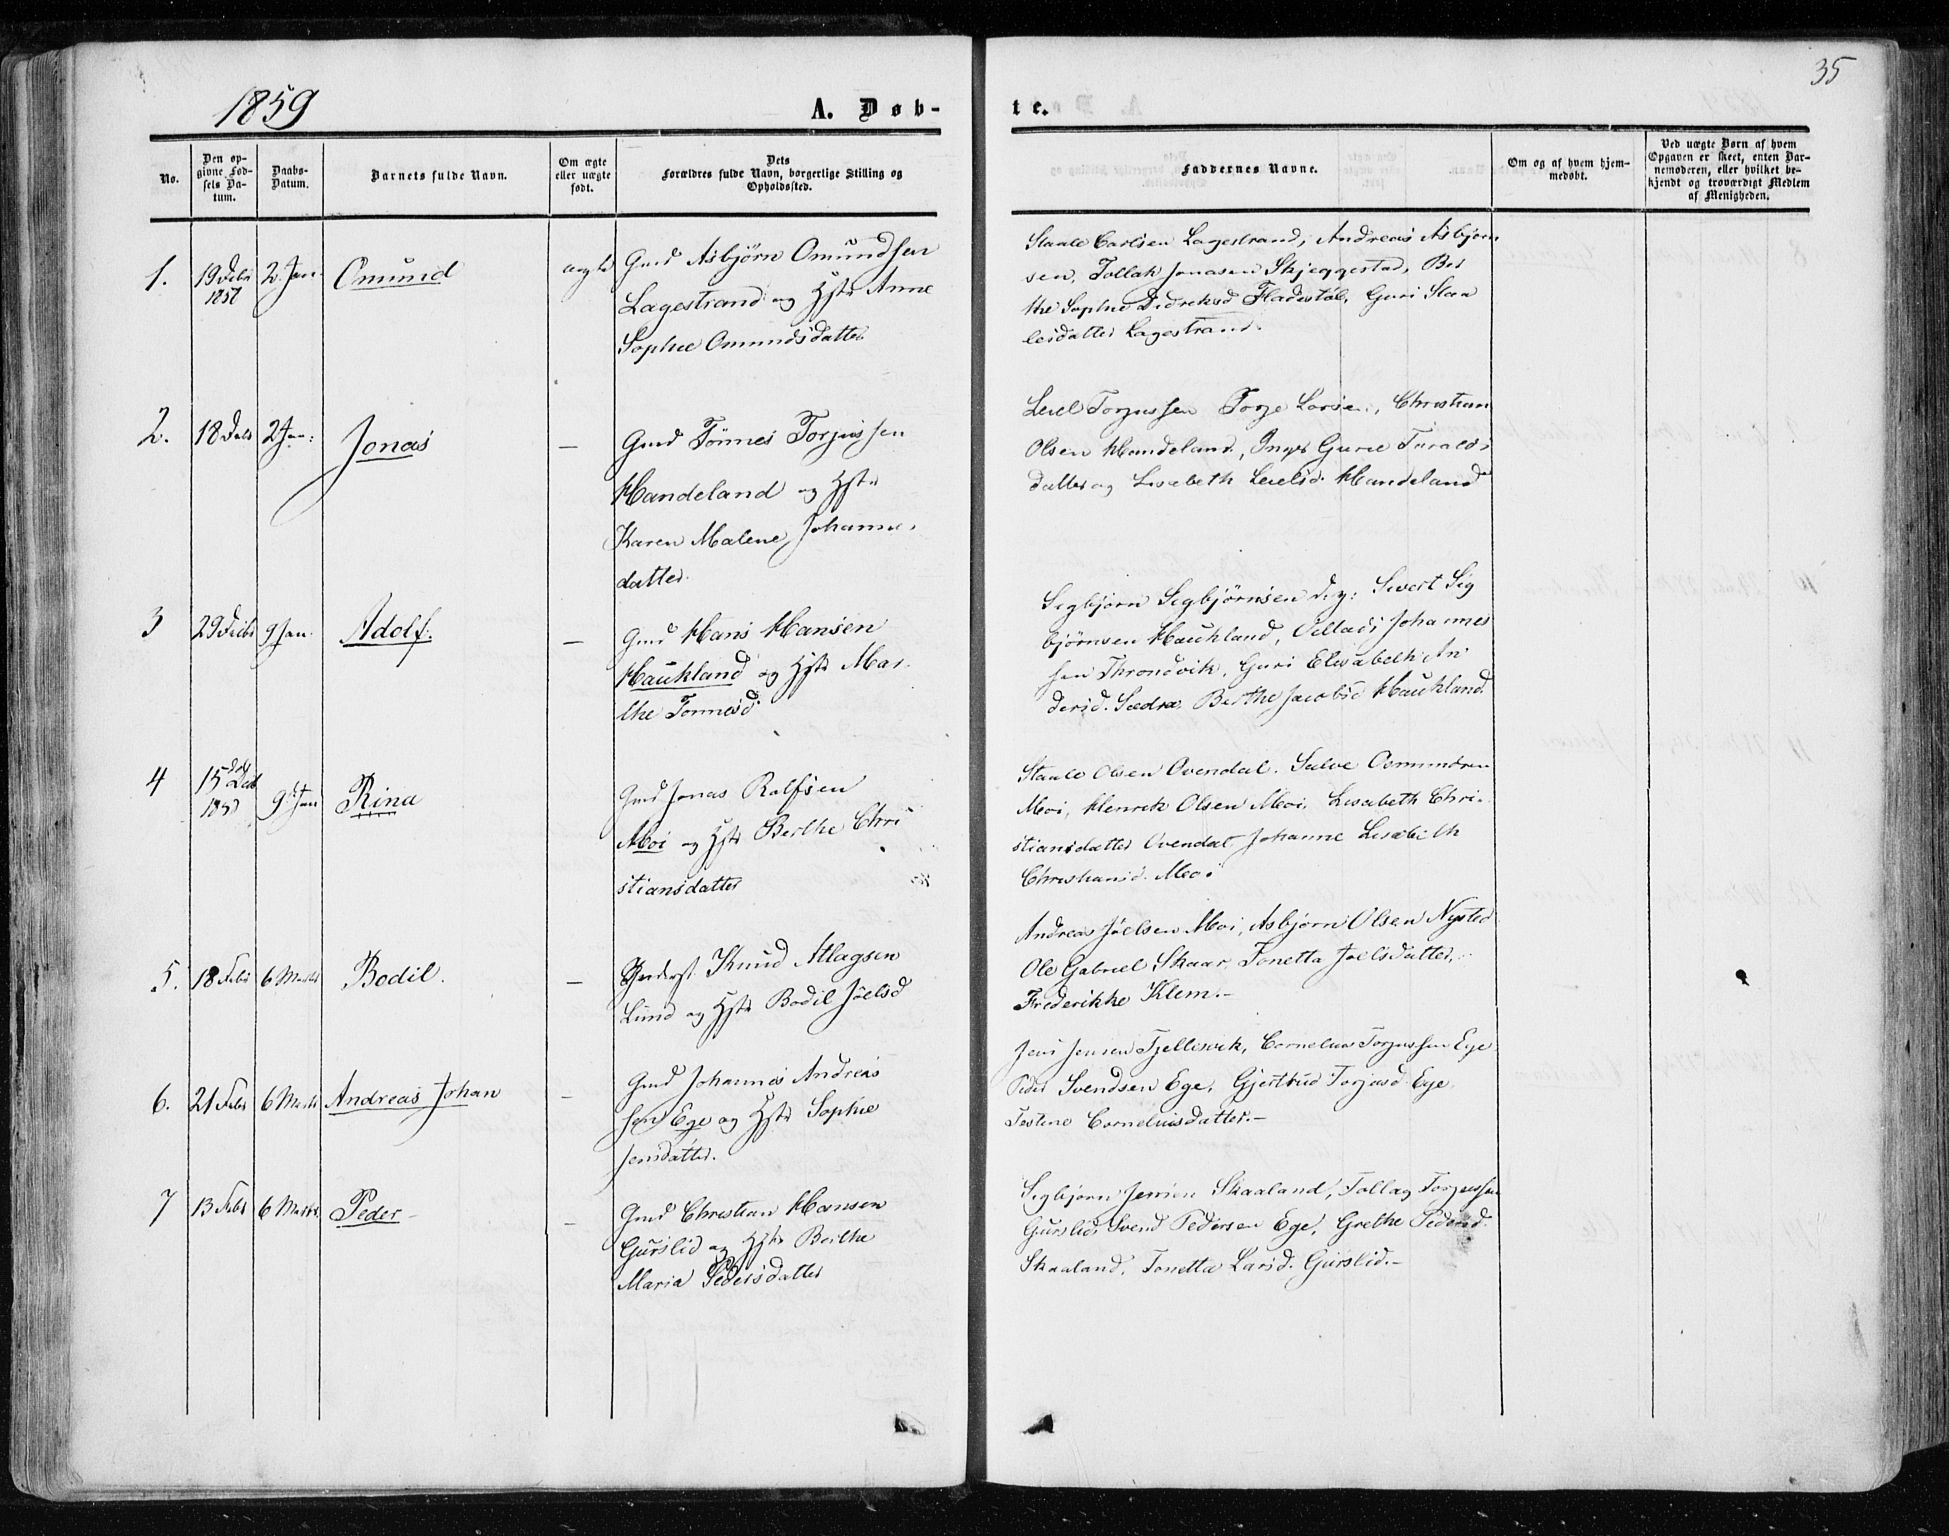 1859
A. Døb-
te.
35
No.
Den op-
givne Fød-
sels Da-
tum.
Daabs-
Datum.
Barnets fulde Navn.
Om ægte
eller uægte
født.
Dets
Forældres fulde Navn, borgerlige Stilling og
Opholdssted.
Faddernes Navne.
Om og af hvem hjem-
medøbt.
Ved uægte Børn af hvem
Opgaven er skeet, enten Bar-
nemoderen, eller hvilket be-
kjendt og troværdigt Medlem
af Menigheden.
1.
19
2. Jan
Omund
ægte
Gmd Asbjörn Omundsen
Lagestrand og Hstr Anne
Sophie Omundsdatter
Staale Carlsen Lagestrand, Andreas Asbjörn
sen, Tollak Jonasen Skjeggestad, Ber
the Sophie Didriksd Fladestöl, Guri Staa
lesdatter Lagestrand.
2.
18
2 Jan:
Jonas
—
Gmd Tönnes Torjussen
Handeland og Hstr
Karen Malene Johannes
datter.
Leul Torjussen Torje Larsen, Christian
Olsen Handeland, Inger Gurie Taralds
datter og Lisabeth Leulsd. Handeland
3
29 Decbr
9 Jan.
Adolf.
—
Gmd Hans Hansen
Haukland og Hstr Mar
the Tonnesd.
Segbjörn Segbjörnsen Sivert Sig
björnsen Haukland, Johannes
sen Throndvik, Guri Elisabeth An
dersd. Sædra, Berthe Jacobsd Haukland.
4
15
9 Jan
Rina
Gmd Jonas Rolfsen
Moi og Hstr Berthe Chri
stiansdatter
Staale Olsen Ovendal. Salve Osmundsen
Moi, Henrik Olsen Moi, Lisabeth Chri-
stiansdatter Ovendal Johanne Lisabeth
Christiansd. Moi
5.
18 Febr
6 Marts
Bodil.
—
Knud Atlagsen
Lund og Hstr Bodil Jöelsd
Andreas Jöelsen Moi, Asbjörn Olsen Nysted
Ole Gabriel Skaar, Tonetta Joelsdatter,
Frederikke Klem.—
6.
21 Febr
6 Marts
Andreas Johan
—
Gmd Johannes Andreas
sen Ege og Hstr Sophie
Jensdatter.
Jens Jensen Tjellesvik, Cornelius Torjussen Ege
Peder Svendsen Ege, Gjertrud Torjusd. Ege
Testine Corneliusdatter.—
7
13 Febr
6 Marts
Peder
—
Gmd Christian Hansen
Gurslid og Hstr Berthe
Maria Pedersdatter
Segbjörn Jensen Skaaland, Tollag Torjussen
Gurslid, Svend Pedersen Ege, Grethe Pedersd.
Skaaland, Tonetta Larsd. Gurslid.—